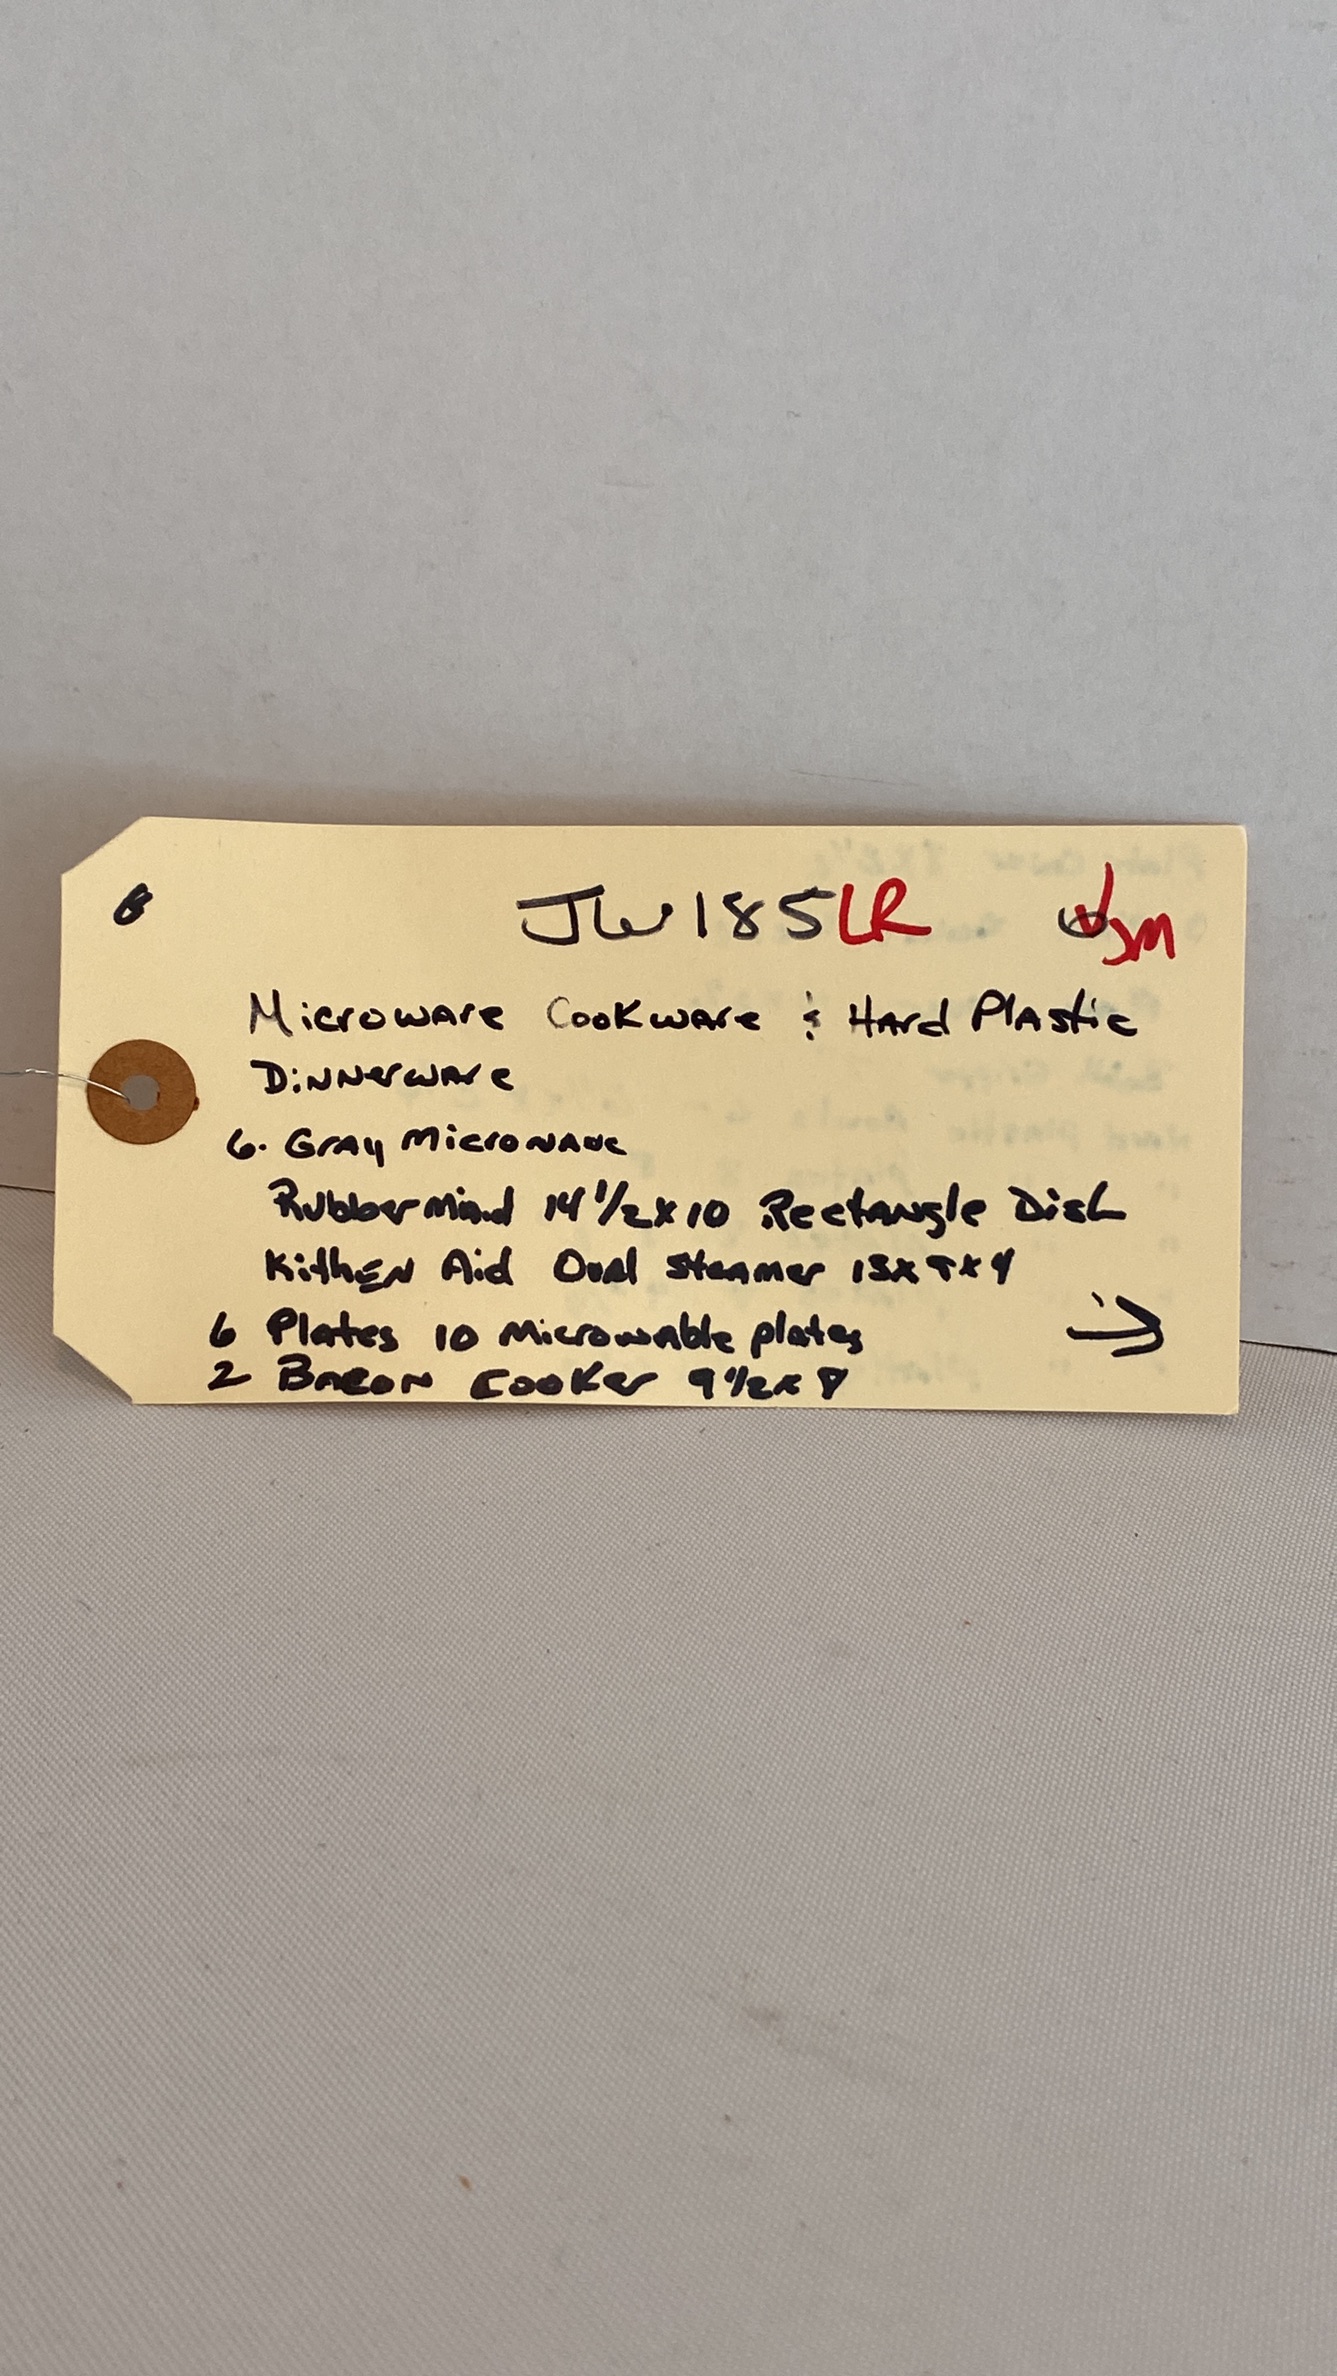 JW185LR JM
Microware Cookware & Hard Plastic
Dinnerware
6. Gray Micronave
Rubbermind 14 1/2 x 10 Rectangle Dish
KithEN Aid Oval Steamer 15x9x4
6 Plates 10 Microwable plates
2 Bacon Cooker 9 1/2 x 8